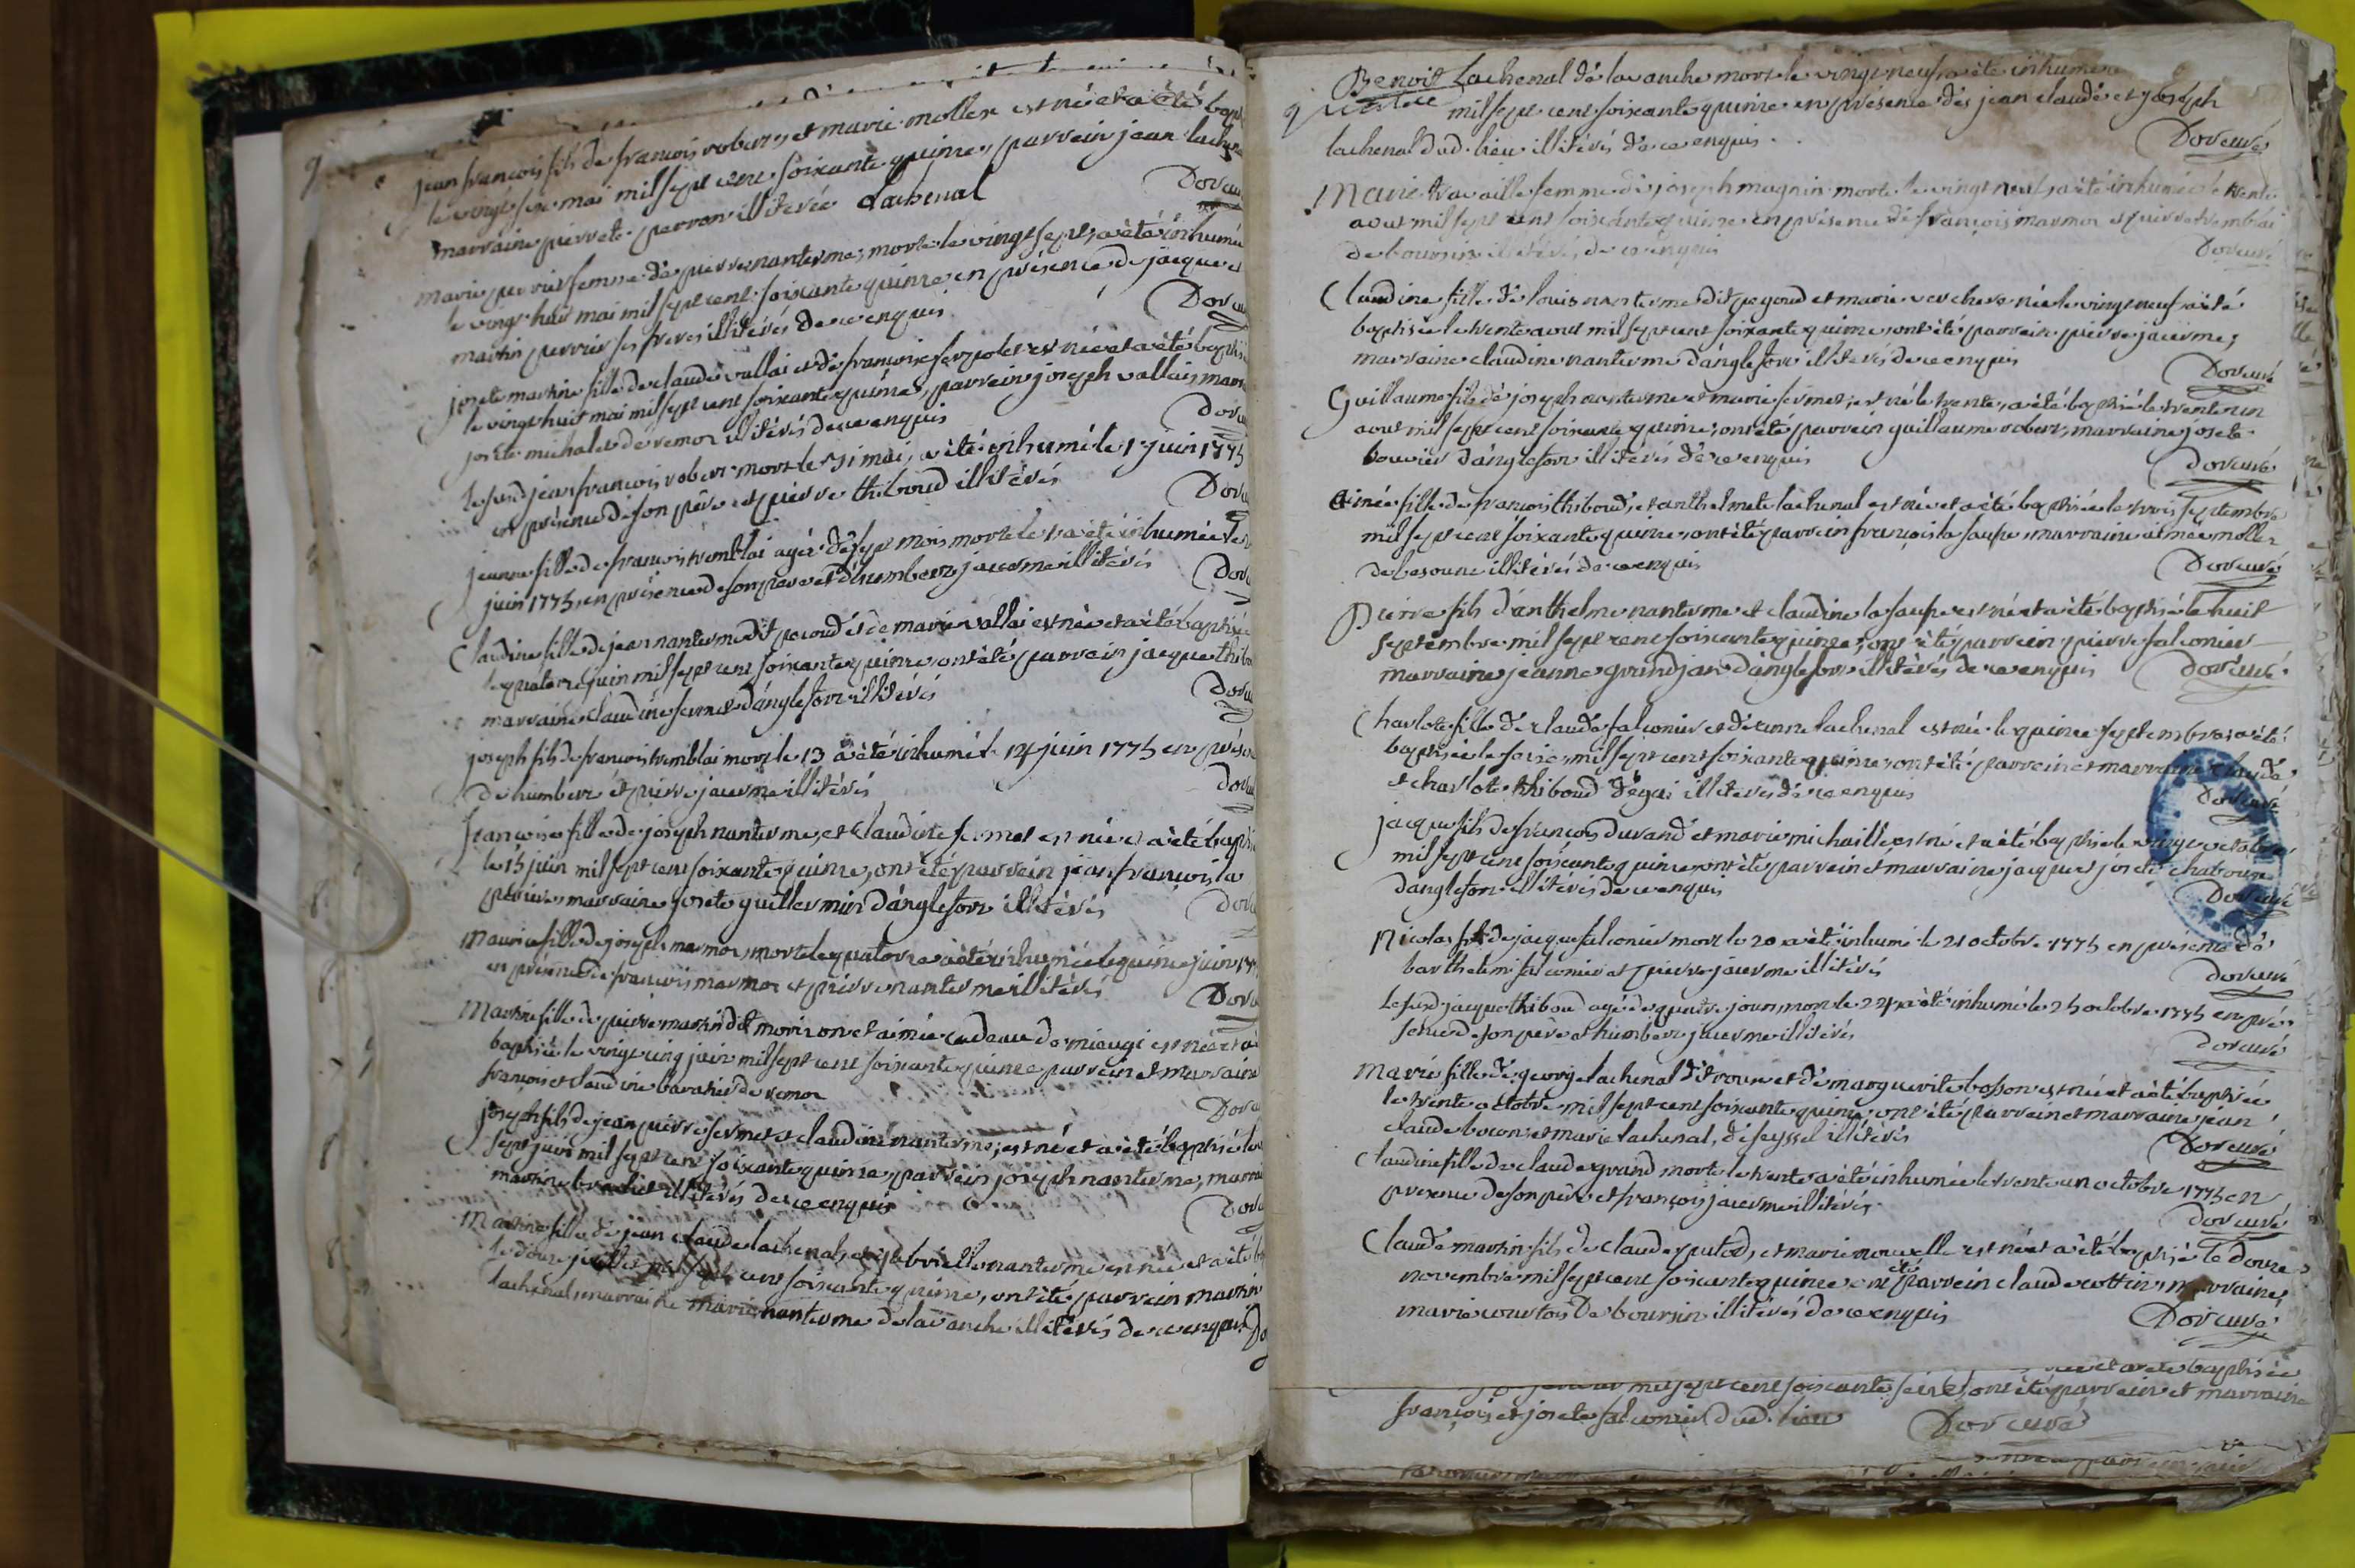 jean francois fils de francois robert, et marie mollex est né et a été bapt
le vingt six mai mil sept cent soixante quinze, parrein jean lachena
marraine pierrete perron illiterée Lachenal
Dor cu
marie perrier femme de pierre nanterme, morte le vingt sept, a été inhumée
le vingt huit mai mil sept cent soixante quinze en présence de jacque et
martin perrier ses freres illiterés de ce enquis
Dor cu
josete martine fille de claude vallai et de francoise serpolet est née et a été baptisé
le vingt huit mai mil sept cent soixante quinze, parrein joseph vallai, marr
josete michalet de remor illiterés de ce enquis
Dor cu
le susd jean francois robert mort le 31 mai, a été inhumé le 1 juin 1775
en présence de son père et pierre thiboud illiterés
Dor cu
jeanne fille de francois tremblai agée de sept mois morte le a été inhumée le
juin 1775, en présence de son pere et d'humbert jacerme illiterés
Dor
Claudine fille de jean nanterme dit pecoud et de marie vallai est née et a été baptisée
le quatorze juin mil sept cent soixante quinze, ont été parrein jacque thibo
marraine claudine fermet d'anglefort illiterés
Dor cu
joseph fils de francois tremblai mort le 13 a été inhumé le 14 juin 1775 en prése
de humbert et pierre jacerme illiterés
Dor cu
Francoise fille de joseph nanterme, et Claudine fermet est née et a été bapti
le 15 juin mil sept cent soixante quinze, ont été parrein jean francois la
perriere, marraine josete guillermin d'anglefort illiterés
Dor
Maurise fille de joseph marmor, morte le quatorze a été inhumée le quinze juin 177
en présence de francois marmor et pierre nanterme illiterés
Dor
Martine fille de pierre martin dit morizon et aimée cadeau de mieugi est née et a é
baptisée le vingt cinq juin mil sept cent soixante quinze parrein et marraine
francois et claudine baratier de remor
Dor
joseph fils de jean pierre fermet et claudine nanterme, est né et a été baptisé le
sept juin mil sept cent soixante quinze, parrein joseph nanterme, marrai
martine brachet illiterés de ce enquis
Dor
Martine fille de jean claude lachenal, et gabrielle nanterme est née et a été b
le douze juillet mil sept cent soixante quinze, ont été parrein martin
lachenal, marraine marie nanterme de lavanche illiterés de ce enquis Do
Benoit Lachenal de lavanche mort le vingt neuf a été inhumé
mil sept cent soixante quinze en présence des jean claude et joseph
lachenal dud. lieu illiterés de ce enquis.
Dor curé
Marie travaille femme de joseph magnin morte le vingt neuf, a été inhumée le trente
aout mil sept cent soixante quinze en présence de françois marmor et pierre tremblai
de boursin illiterés de ce enquis
Dor curé
Claudine fille de louis nanterme dit pegoud et marie verchere née le vingt neuf a été
baptisée le trente aout mil sept cent soixante quinze, ont été parrein pierre jacerme,
marraine claudine nanterme d'anglefort illiterés de ce enquis
Dor curé
Guillaume fils de joseph nanterme et marie fermet, est né le trente, a été baptisé le trente un
aout mil sept cent soixante quinze, ont été parrein guillaume robert, marraine josete
bouvier d'anglefort illiterés de ce enquis
Dor curé
aimée fille de francois thiboud, et anthelmete lachenal est née et a été baptisée le trois septembre
mil sept cent soixante quinze ont été parrein françois la saupe, marraine aimée mollex
de besoune illiterés de ce enquis
Dor curé
Pierre fils d'anthelme nanterme et claudine la saupe est né et a été baptisé le huit
septembre mil sept cent soixante quinze, ont été parrein pierre falconier
marraine jeanne grandjan d'anglefort illiterés de ce enquis
Dor curé
Charlote fille de claude falconier et de anne lachenal est née le quinze septembre, a été
baptisée le seize, mil sept cent soixante quinze, ont été parrein et marraine claude
et charlote thiboud d'égai illiterés de ce enquis
Dor curé
jacque fils de francois durand et marie michaille est né et a été baptisé le vingt octobre
mil sept cent soixante quinze, ont été parrein et marraine jacque et josete chaboune
d'anglefort illiterés de ce enquis
Dor curé
Nicolas fils de jacque falconier mort le 20 a été inhumé le 21 octobre 1775 en présence de
barthelemi falconier et pierre jacerme illiterés
Dor curé
Le susd jacque thiboud agé de quatre jours mort le 24 a été inhumé le 25 octobre 1775 en pré-
sence de son pere et humbert jacerme illiterés
Dor curé
Marie fille de george lachenal dit roux et de marguerite bosson est née et a été baptisée
le trente octobre mil sept cent soixante quinze ont été parrein et marraine jean
claude bocon, et marie lachenal, de seyssel illiterés
Dor curé
Claudine fille de claude grand morte le trente a été inhumée le trente un octobre 1775 en
presence de son père et françois jacerme illiterés.
Dor curé
Claude martin fils de claude putod, et marie nouvelle est né et a été baptisé le douze
novembre mil sept cent soixante quinze ont été parrein claude cottin, marraine
marie courtois de boursin illiterés de ce enquis
Dor curé
née et a été baptisée
mil sept cent soixante seize, ont été parrein et marraine
françois et josete falconier dud. lieu
Dor curé